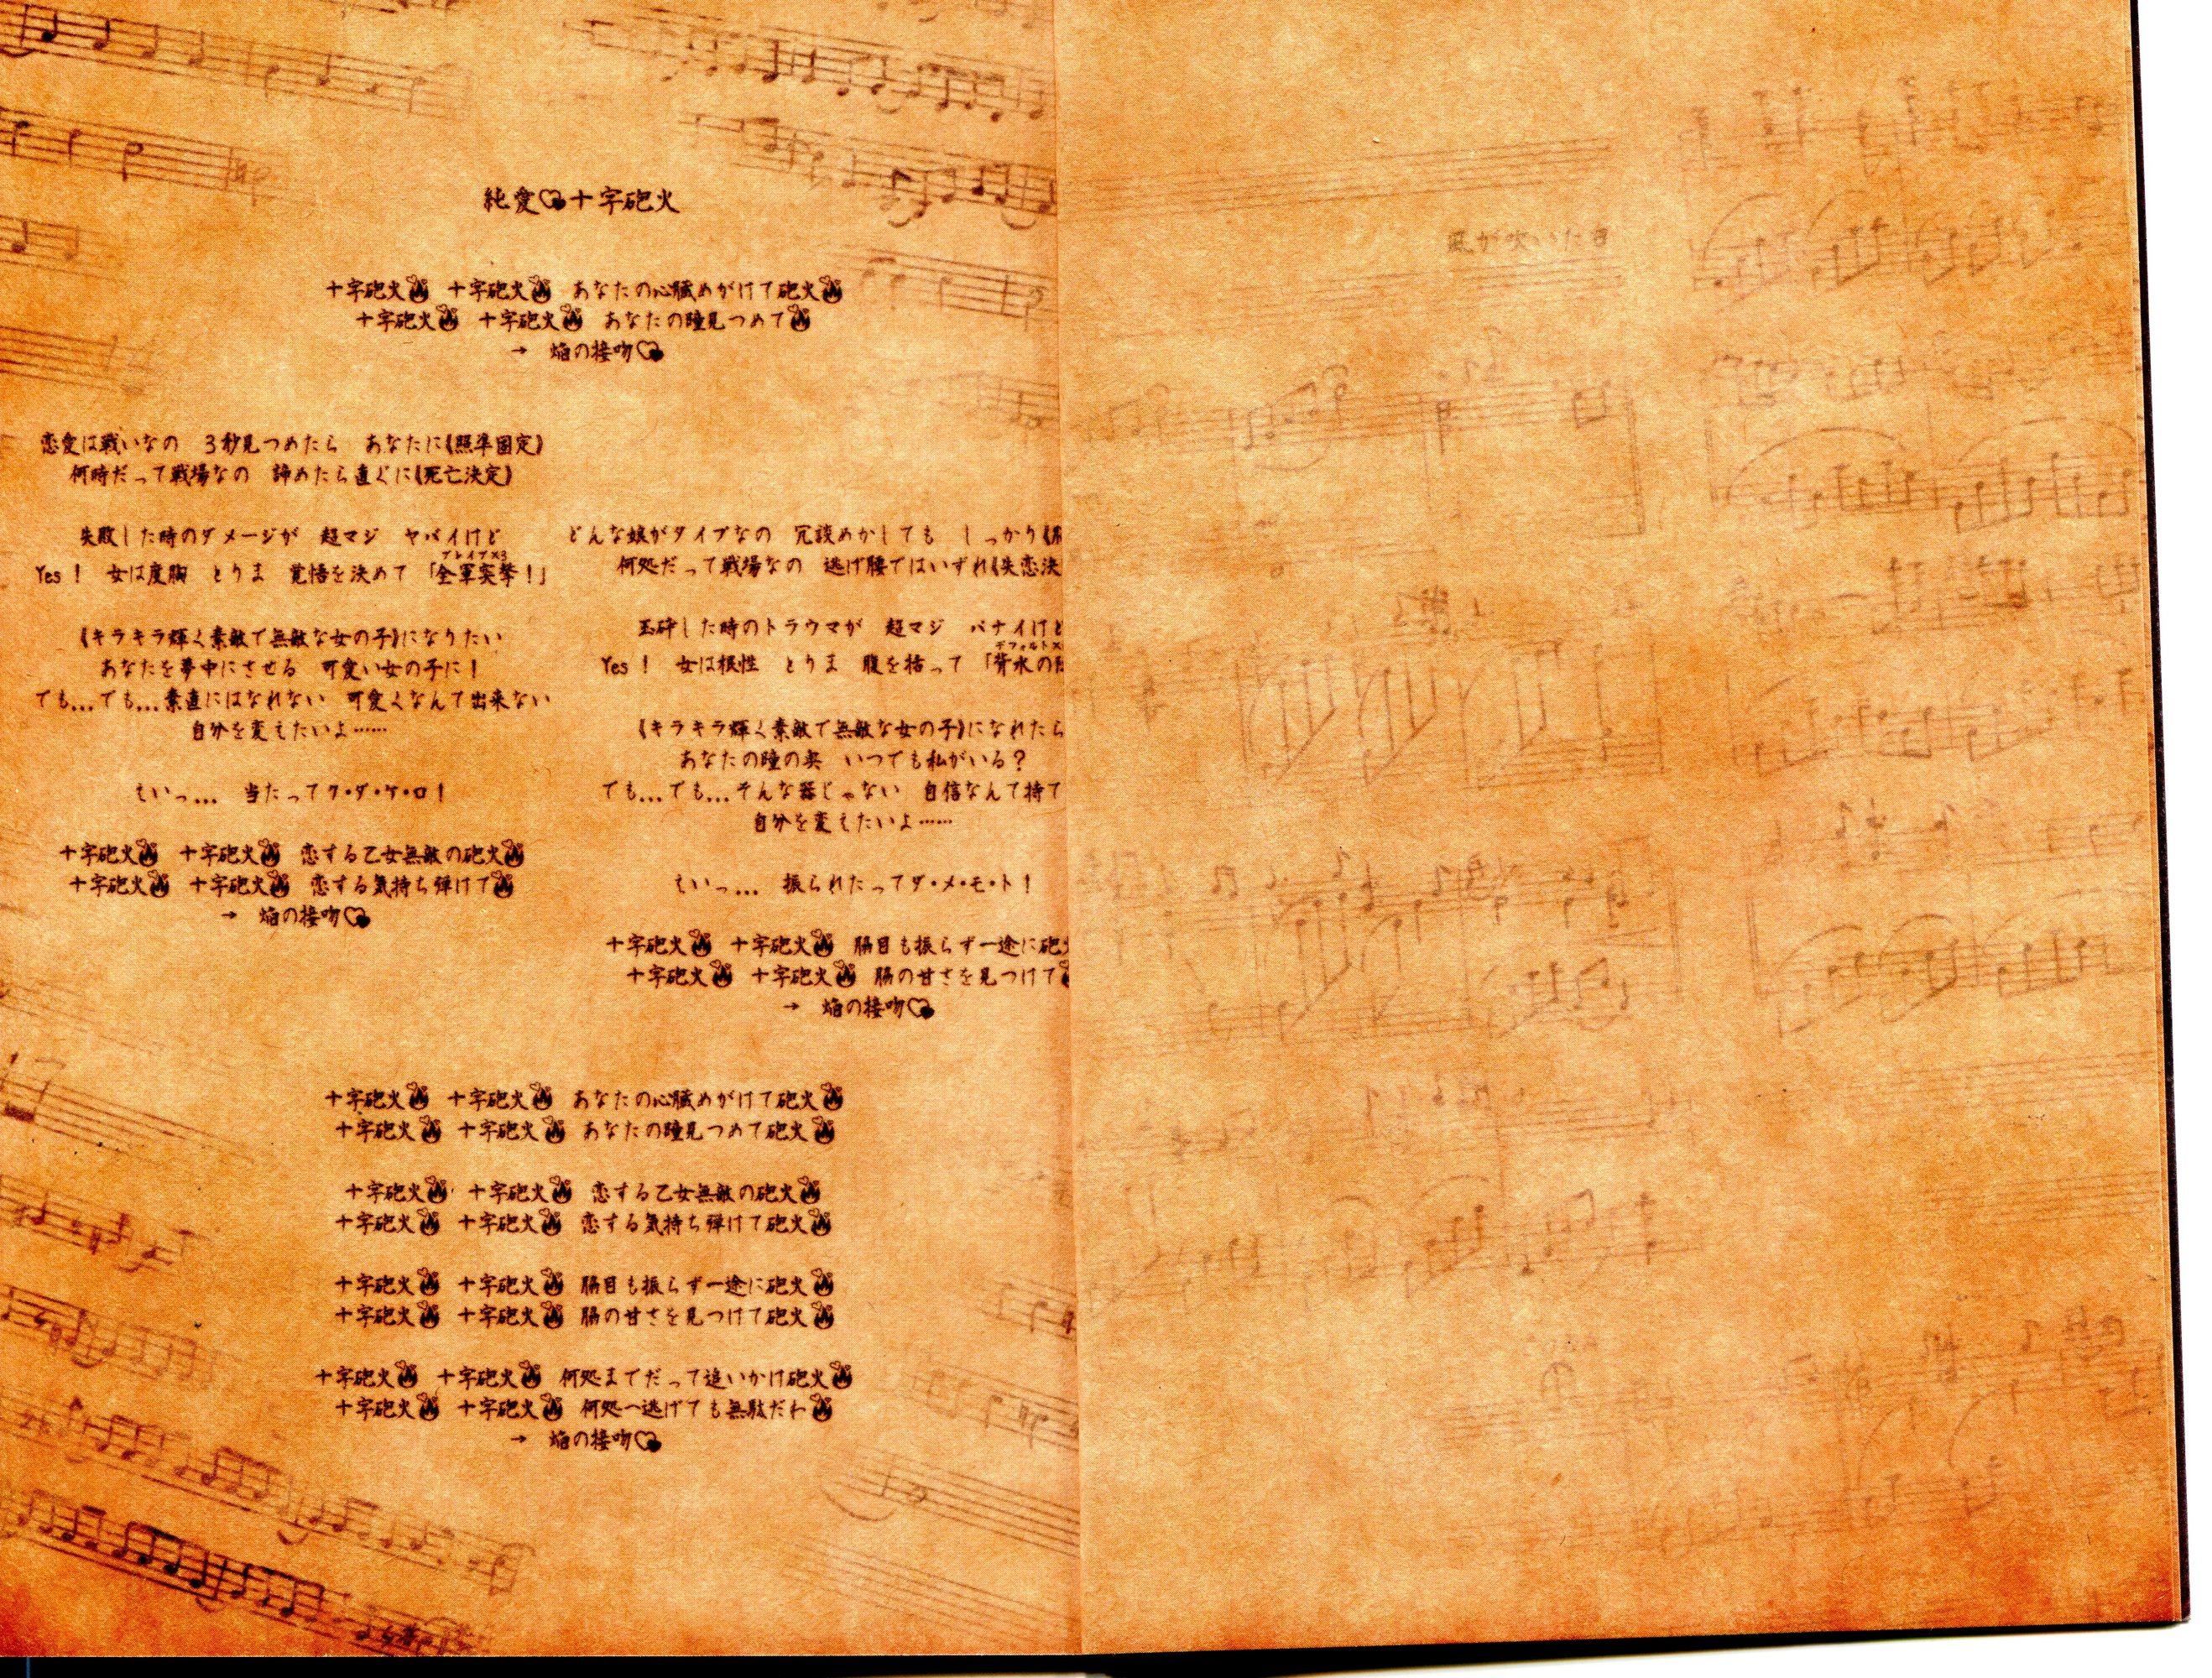 純愛♡十字砲火
十字砲火 十字砲火 あなたの心臓めがけて砲火
十字砲火 十字砲火 あなたの瞳見つめて
→ 焔の接吻♡
恋愛は戦いなの 3秒見つめたら あなたに《照準固定》
何時だって戦場なの 諦めたら直ぐに《死亡決定》
失敗した時のダメージが 超マジ ヤバイけど
ブレイブ×3
Yes！ 女は度胸 とりま 覚悟を決めて 「全軍突撃！」
《キラキラ輝く素敵で無敵な女の子》になりたい
あなたを夢中にさせる 可愛い女の子に！
でも…でも…素直にはなれない 可愛くなんて出来ない
自分を変えたいよ……
えいっ… 当たってク・ダ・ケ・ロ！
十字砲火 十字砲火 恋する乙女無敵の砲火
十字砲火 十字砲火 恋する気持ち弾けて
→ 焔の接吻♡
どんな娘がタイプなの 冗談めかしても しっかり《
何処だって戦場なの 逃げ腰ではいずれ《失恋決
玉砕した時のトラウマが 超マジ パナイけど
デフォルト×
Yes！ 女は根性 とりま 腹を括って 「背水の
《キラキラ輝く素敵で無敵な女の子》になれたら
あなたの瞳の奥 いつでも私がいる？
でも…でも…そんな器じゃない 自信なんて持て
自分を変えたいよ……
えいっ… 振られたってダ・メ・モ・ト！
十字砲火 十字砲火 脇目も振らず一途に砲火
十字砲火 十字砲火 脇の甘さを見つけて
→ 焔の接吻♡
十字砲火 十字砲火 あなたの心臓めがけて砲火
十字砲火 十字砲火 あなたの瞳見つめて砲火
十字砲火 十字砲火 恋する乙女無敵の砲火
十字砲火 十字砲火 恋する気持ち弾けて砲火
十字砲火 十字砲火 脇目も振らず一途に砲火
十字砲火 十字砲火 脇の甘さを見つけて砲火
十字砲火 十字砲火 何処までだって追いかけ砲火
十字砲火 十字砲火 何処へ逃げても無駄だわ
→ 焔の接吻♡
風が吹いた日